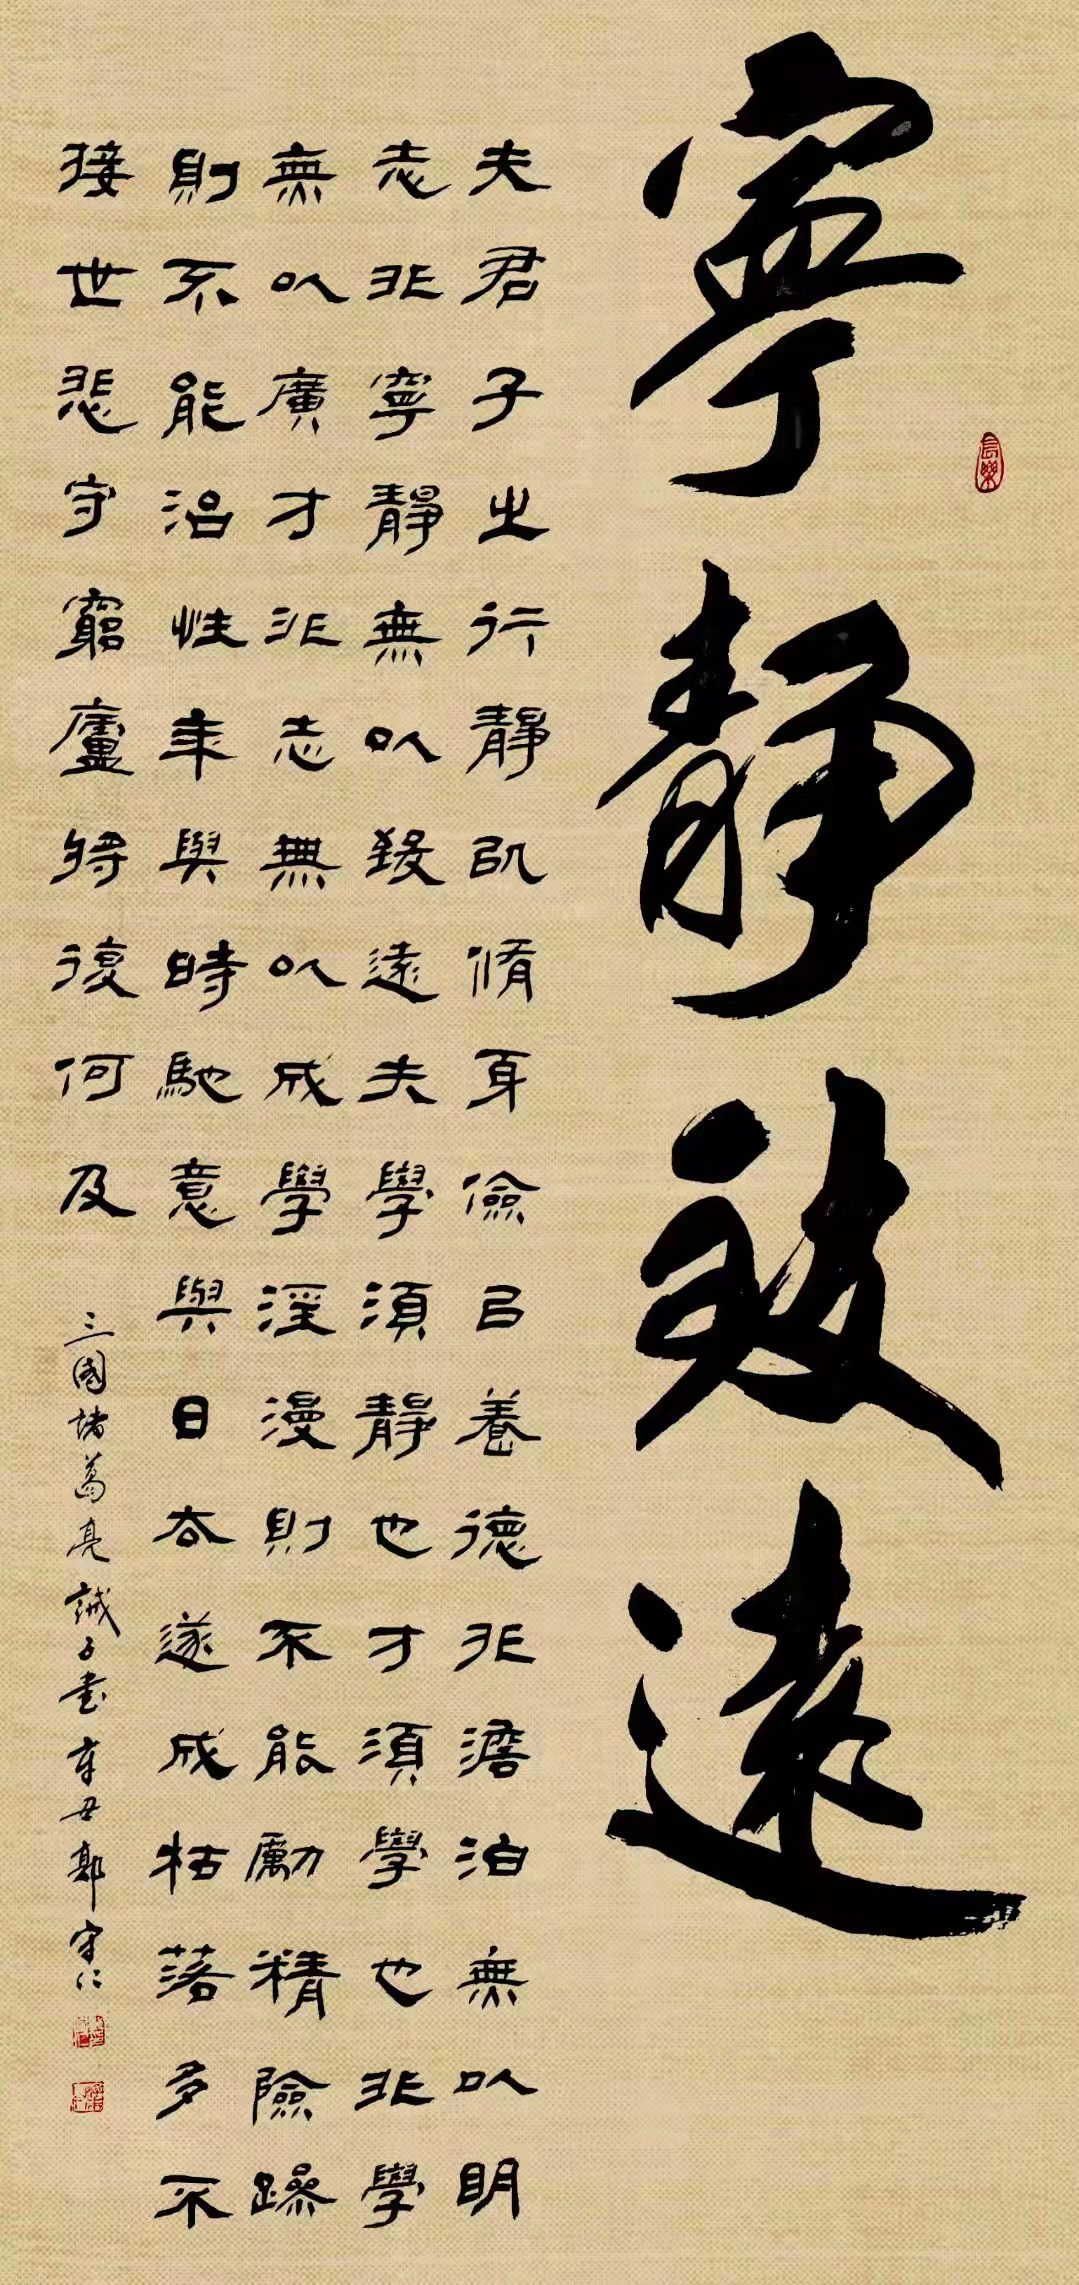 長樂
寧靜致遠
夫君子之行靜以脩身儉以養德非澹泊無以明
志非寧靜無以致遠夫學須靜也才須學也非學
無以廣才非志無以成學淫漫則不能勵精險躁
則不能治性年與時馳意與日去遂成枯落多不
接世悲守窮廬將復何及
三國諸葛亮誡子書辛丑郭守仁